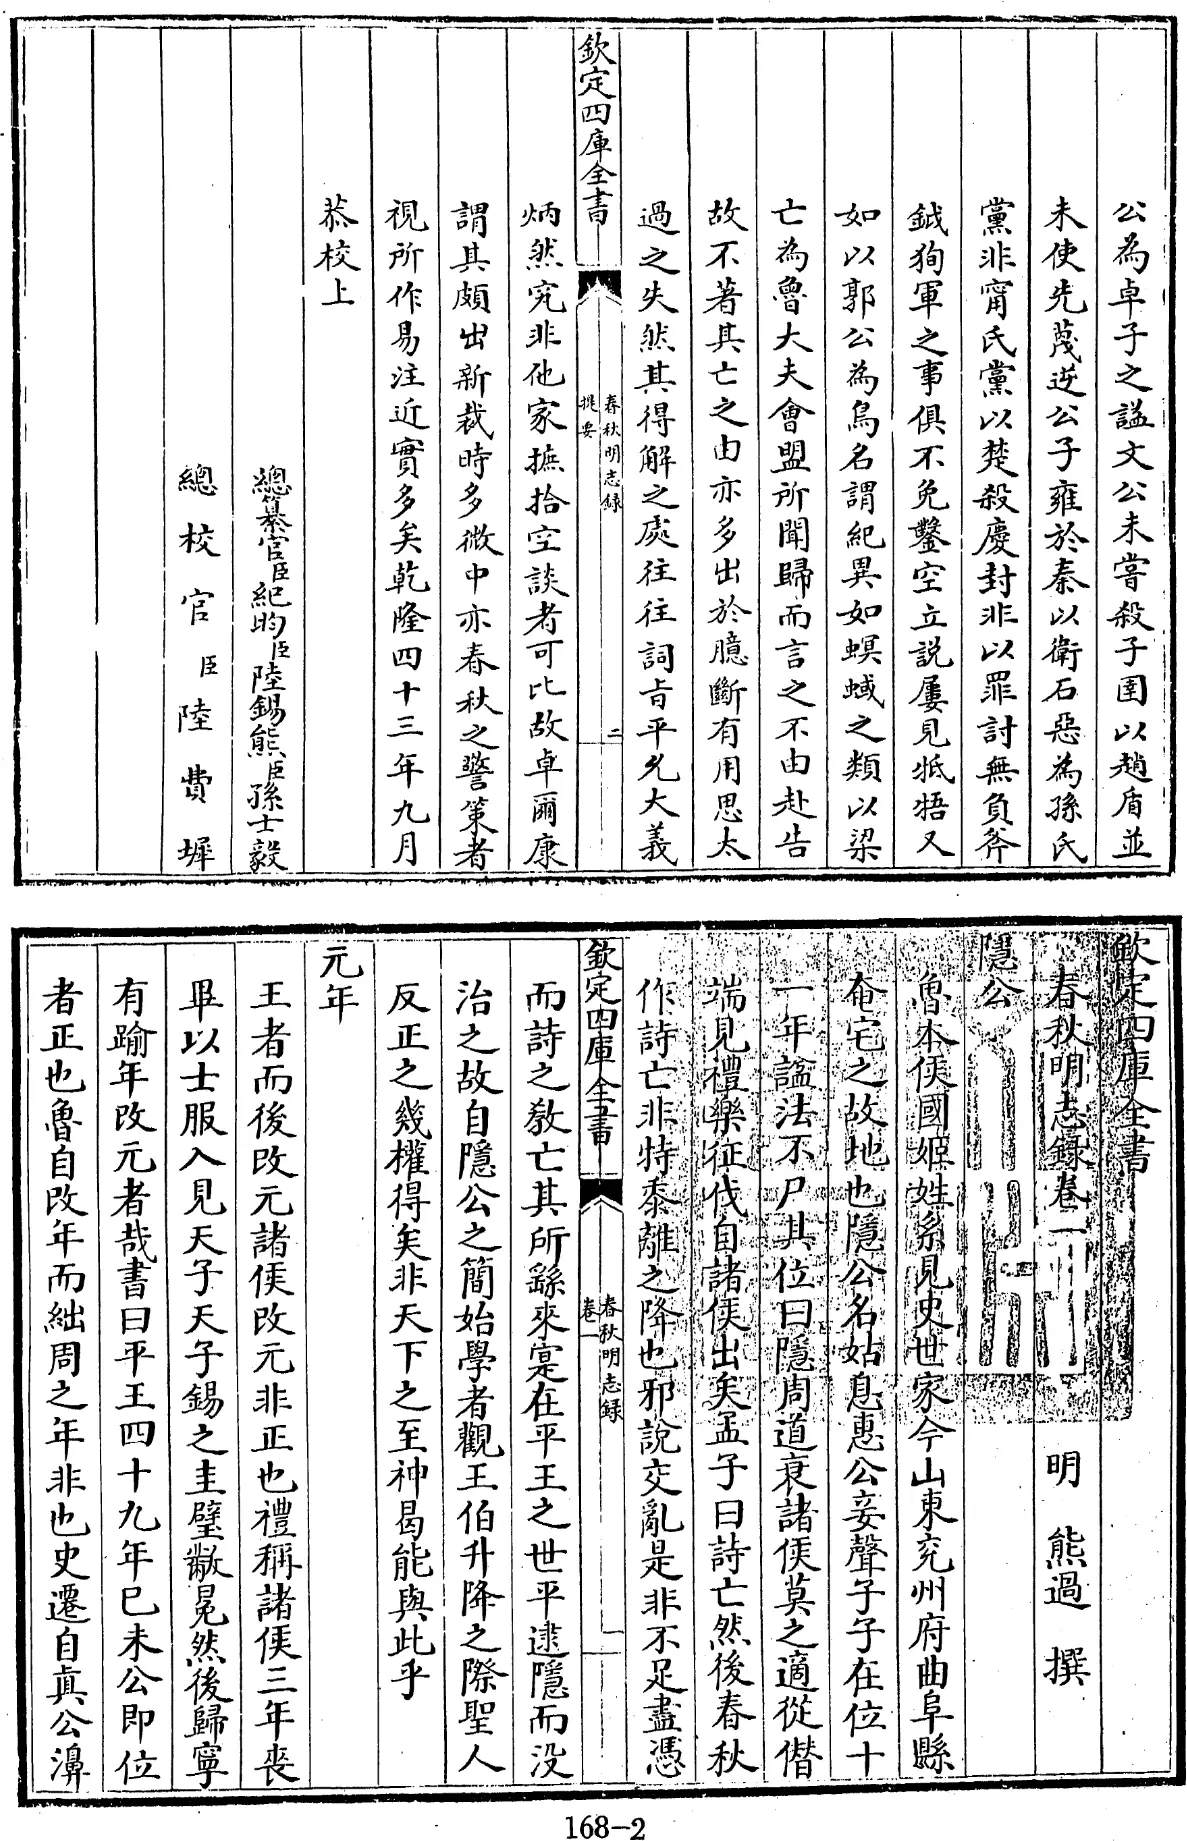 公為卓子之諡文公未嘗殺子圉以趙盾並
未使先蔑逆公子雍於秦以衛石惡為孫氏
黨非甯氏黨以楚殺慶封非以罪討無負斧
鉞狥軍之事俱不免鑿空立説屢見牴牾又
如以郭公為鳥名謂紀異如螟蜮之類以梁
亡為魯大夫會盟所聞歸而言之不由赴告
故不著其亡之由亦多出於臆斷有用思太
過之失然其得解之處往往詞㫖平允大義
欽定四庫全書
春秋明志録
提要
二
炳然究非他家摭拾空談者可比故卓爾康
謂其頗出新裁時多微中亦春秋之警策者
視所作易注近實多矣乾隆四十三年九月
恭校上
總纂官臣紀昀臣陸錫熊臣孫士毅
總校官臣陸費墀
欽定四庫全書
春秋明志錄卷一
明熊過撰
隱公
魯本侯國姬姓系見史世家今山東兖州府曲阜縣
奄宅之故地也隱公名姑息惠公妾聲子子在位十
一年諡法不尸其位曰隱周道衰諸侯莫之適從僣
端見禮樂征伐自諸侯出矣孟子曰詩亡然後春秋
作詩亡非特黍離之降也邪說交亂是非不足盡憑
欽定四庫全書
春秋明志録
卷一
一
而詩之敎亡其所繇來寔在平王之世平逮隱而没
治之故自隱公之簡始學者觀王伯升降之際聖人
反正之幾權得矣非天下之至神曷能與此乎
元年
王者而後改元諸侯改元非正也禮稱諸侯三年喪
畢以士服入見天子天子錫之圭璧黻冕然後歸寧
有踰年改元者哉書曰平王四十九年巳未公即位
者正也魯自改年而絀周之年非也史遷自真公濞
168-2